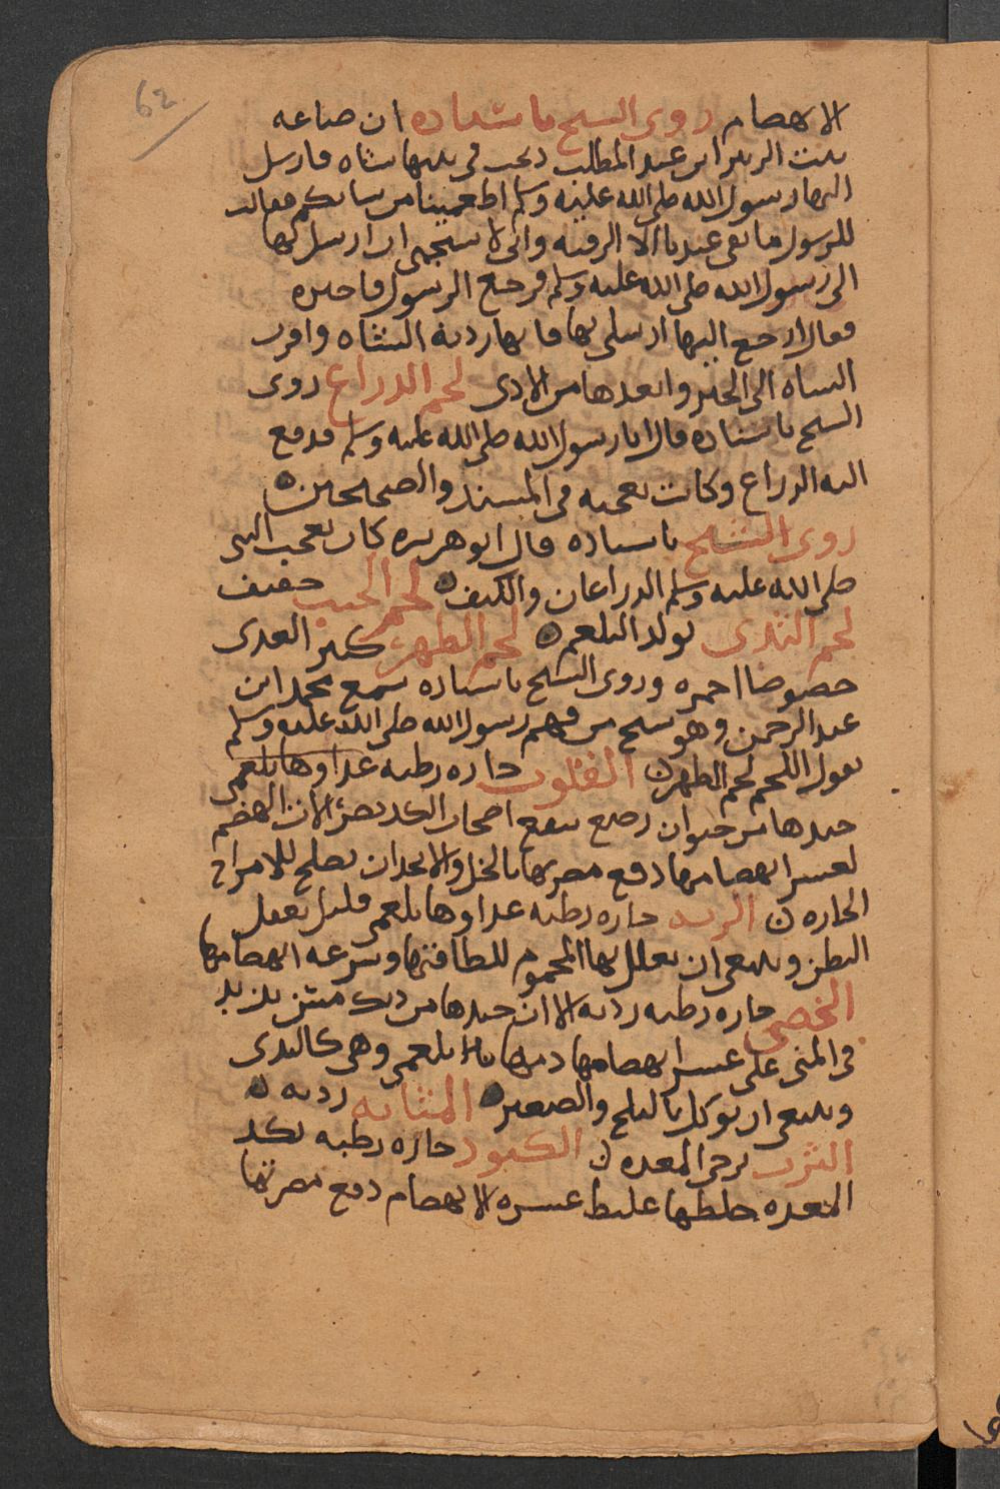 62
الانهضام روى الشيخ باسناده ان ضباعه
بنت الزبير ابن عبد المطلب ذبحت في بيتها شاه فارسل
اليها رسول الله صلى الله عليه وسلم اطعمينا من شاتكم فقالت
للرسول ما بقي عندنا الا الرقبه واني لاستحيي ان ارسل بها
الى رسول الله صلى الله عليه وسلم فرجع الرسول فاخبره
فقال ارجع اليها ارسلي بها فانها رديه الشاه واقرب
الشاه الى الخير وابعدها من الاذى لحم الذراع روى
الشيخ باسناده قال اتا رسول الله صلى الله عليه وسلم فدفع
اليه الذراع وكانت تعجبه في المسند والصحيحين
روى الشيخ باسناده قال ابو هريره كان يعجب النبي
صلى الله عليه وسلم الذراعان والكتف لحم الجنب خفيف
لحم الثدى يولد البلغم لحم الظهر كثير الغذى
خصوصا احمره وروى الشيخ باسناده سمع محمد ابن
عبد الرحمن وهو شيخ من فهم رسول الله صلى الله عليه وسلم
يقول اللحم لحم الظهر القلوب حاره رطبه غذاوها بلغمى
جيدها من حيوان رضيع ينفع اصحاب الكد يضر الات الهضم
لعسر انهضامها دفع مضرتها بالخل والانجدان يصلح للامزاج
الحاره الريه حاره رطبه غذاوها بلغمى قليل يعقل
البطن وينبغي ان يعلل بها المحموم للطافتها وسرعه انهضامها
الخصى حاره رطبه رديه الا ان جيدها من ديك مسمن يزيد
في المني على عسر انهضامها دمها بلغمى وهي كالثدى
وينبغي ان يوكل بالملح والصعتر المثانه رديه
الثرب يرخى المعده الكبود حاره رطبه تكد
المعده خلطها غليظ عسره الانهضام دفع مضرتها